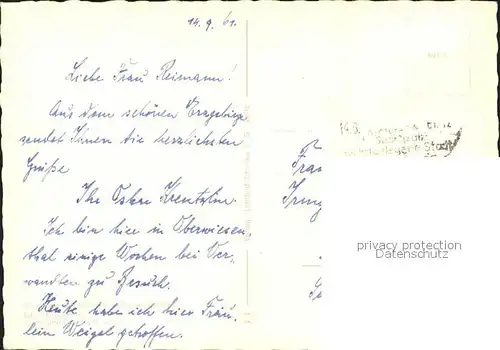 14. 9. 61.
Liebe Frau Reimann!
Aus dem schönen Erzgebirge
sendet Ihnen die herzlichsten
Grüße
Ihr Oskar
Ich bin hier in Oberwiesen-
thal einige Wochen bei Ver-
wandten zu Besuch.
Heute habe ich hier Fräu-
lein Weigel getroffen.
Frau
Irmg
privacy protection
Datenschutz